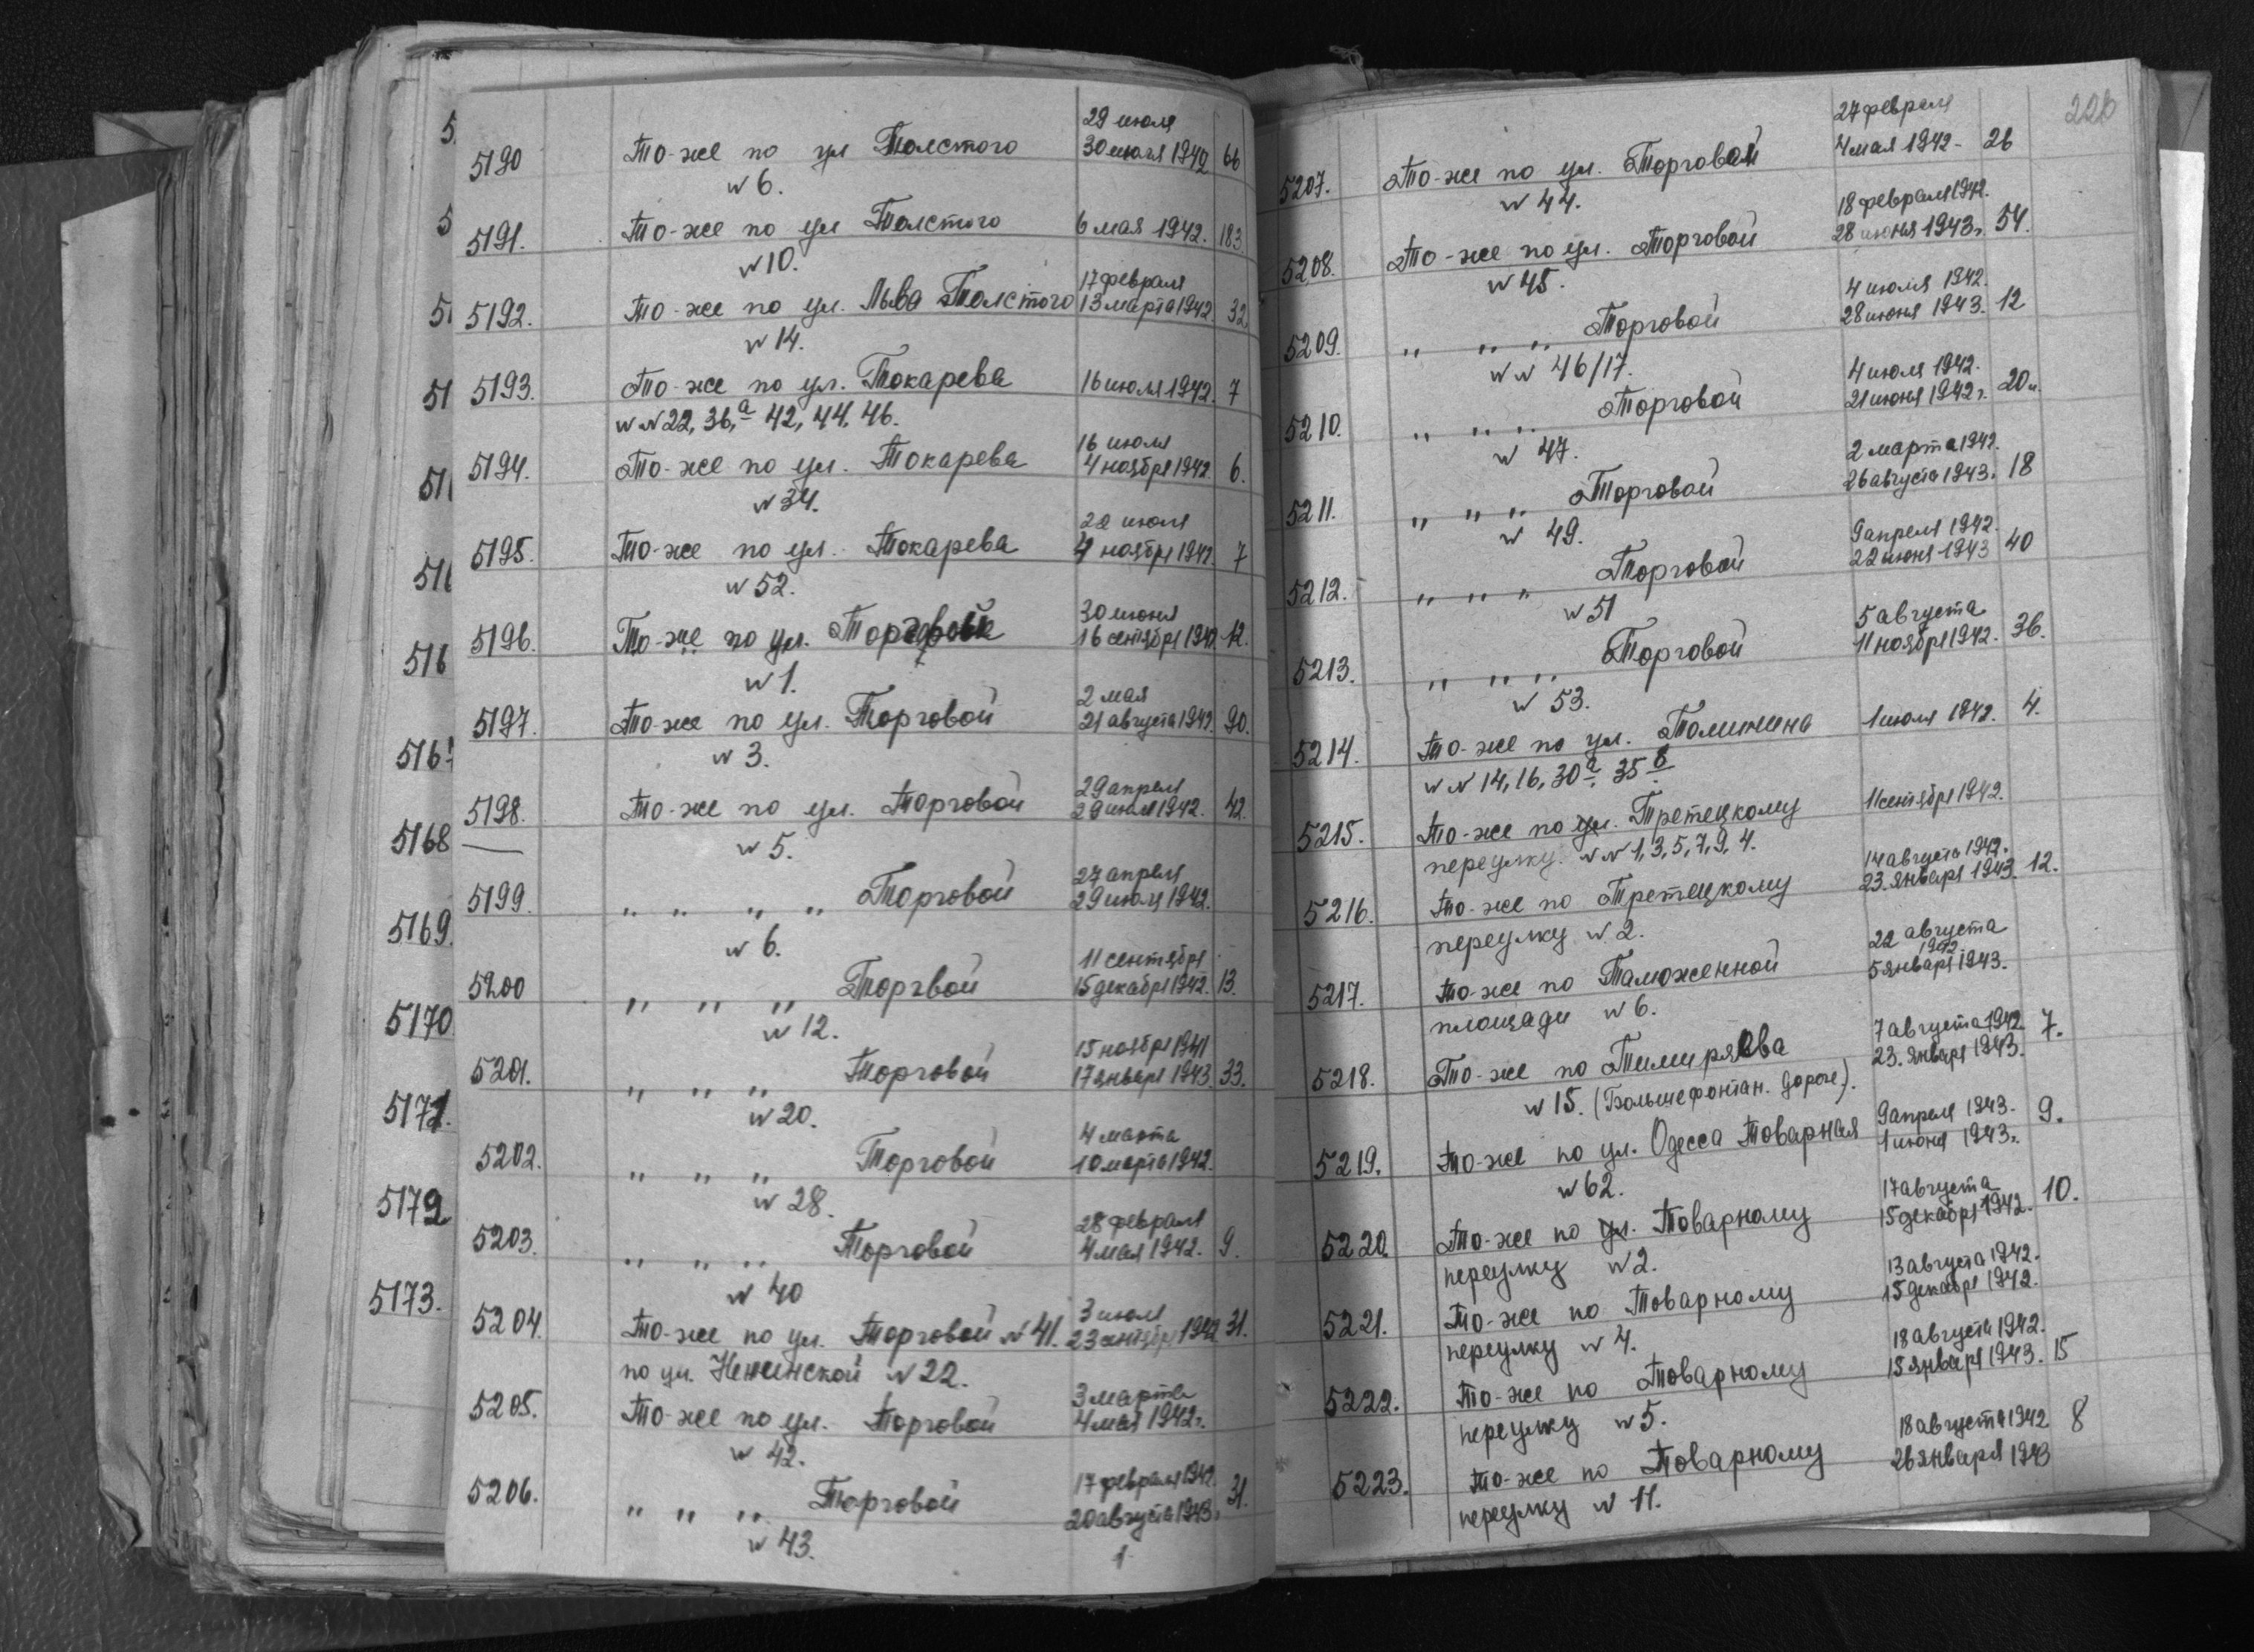 5190 То-же по ул Толстого 29 июля
30 июля 1942 66
№ 6.
5191. То-же по ул Толстого 6 мая 1942. 183
№ 10.
5192. То-же по ул. Льва Толстого 17 февраля
13 марта 1942. 32
№ 14.
5193. То-же по ул. Токарева 16 июля 1942. 7
№№ 22, 36,а 42, 44, 46.
5194. То-же по ул. Токарева 16 июля
4 ноября 1942. 6.
№ 34.
5195. То-же по ул. Токарева 22 июля
4 ноября 1942. 7
№ 52.
5196. То-же по ул. 30 июня
16 сентября 1942. 12.
№ 1.
5197. То-же по ул. Торговой 2 мая
21 августа 1942. 90.
№ 3.
5198. То-же по ул. Торговой 29 апреля
29 июля 1942. 42.
№ 5.
5199. " " " " Торговой 27 апреля
29 июля 1942.
№ 6.
5200 " " " Торгвой 11 сентября
15 декабря 1942. 13.
№ 12.
5201. " " " Торговой 15 ноября 1941
17 января 1943. 33.
№ 20.
5202. " " " Торговой 4 марта
10 марта 1942.
№ 28.
5203. " " " Торговой 28 февраля
4 мая 1942. 9.
№ 40
5204. То-же по ул. Торговой № 41. 3 июля
23 сентября 1942 31.
по ул. Нежинской № 22.
5205. То-же по ул. Торговой 3 марта
4 мая 1942г.
№ 42.
5206. " " " Торговой 17 февраля 1942.
20 августа 1943. 31.
№ 43.
1
5
51
51
516
5168
5169.
5170
5171.
5172
5173.
226
5207. То-же по ул. Торговой 27 февраля
4 мая 1942- 26
№ 44.
5208. То-же по ул. Торговой 18 февраля 1942.
28 июня 1943г. 54.
№ 45.
5209. " " " Торговой 4 июля 1942.
28 июня 1943. 12
№№ 46/17.
5210. " " " Торговой 4 июля 1942.
21 июня 1942г. 20
№ 47.
5211. " " " Торговой 2 марта 1942.
26 августа 1943. 18
№ 49.
5212. " " " Торговой 9 апреля 1942.
22 июня 1943 40
№ 51
5213. " " " Торговой 5 августа
11 ноября 1942. 36.
№ 53.
5214. То-же по ул. 1 июля 1942. 4.
№№ 14, 16, 30а, 35
5215. То-же по ул. Третецкому 11 сентября 1942.
переулку. №№ 1, 3, 5, 7, 9, 4.
5216. То-же по Третецкому 14 августа 1942.
23. января 1943. 12.
переулку № 2.
5217. То-же по Таможенной 22 августа
1942.
5 января 1943.
площади № 6.
5218. То-же по 7 августа 1942.
23. января 1943. 7.
№ 15. (Большефонтан. дороге).
5219. То-же по ул. Одесса Товарная 9 апреля 1943.
1 июня 1943г. 9.
№ 62.
5220. То-же по ул. Товарному 17 августа
15 декабря 1942. 10.
переулку № 2.
5221. То-же по Товарному 13 августа 1942.
15 декабря 1942.
переулку № 4.
5222. То-же по Товарному 18 августа 1942.
15 января 1943. 15
переулку № 5.
5223. То-же по Товарному 18 августа 1942 8
26 января 1943
переулку № 11.